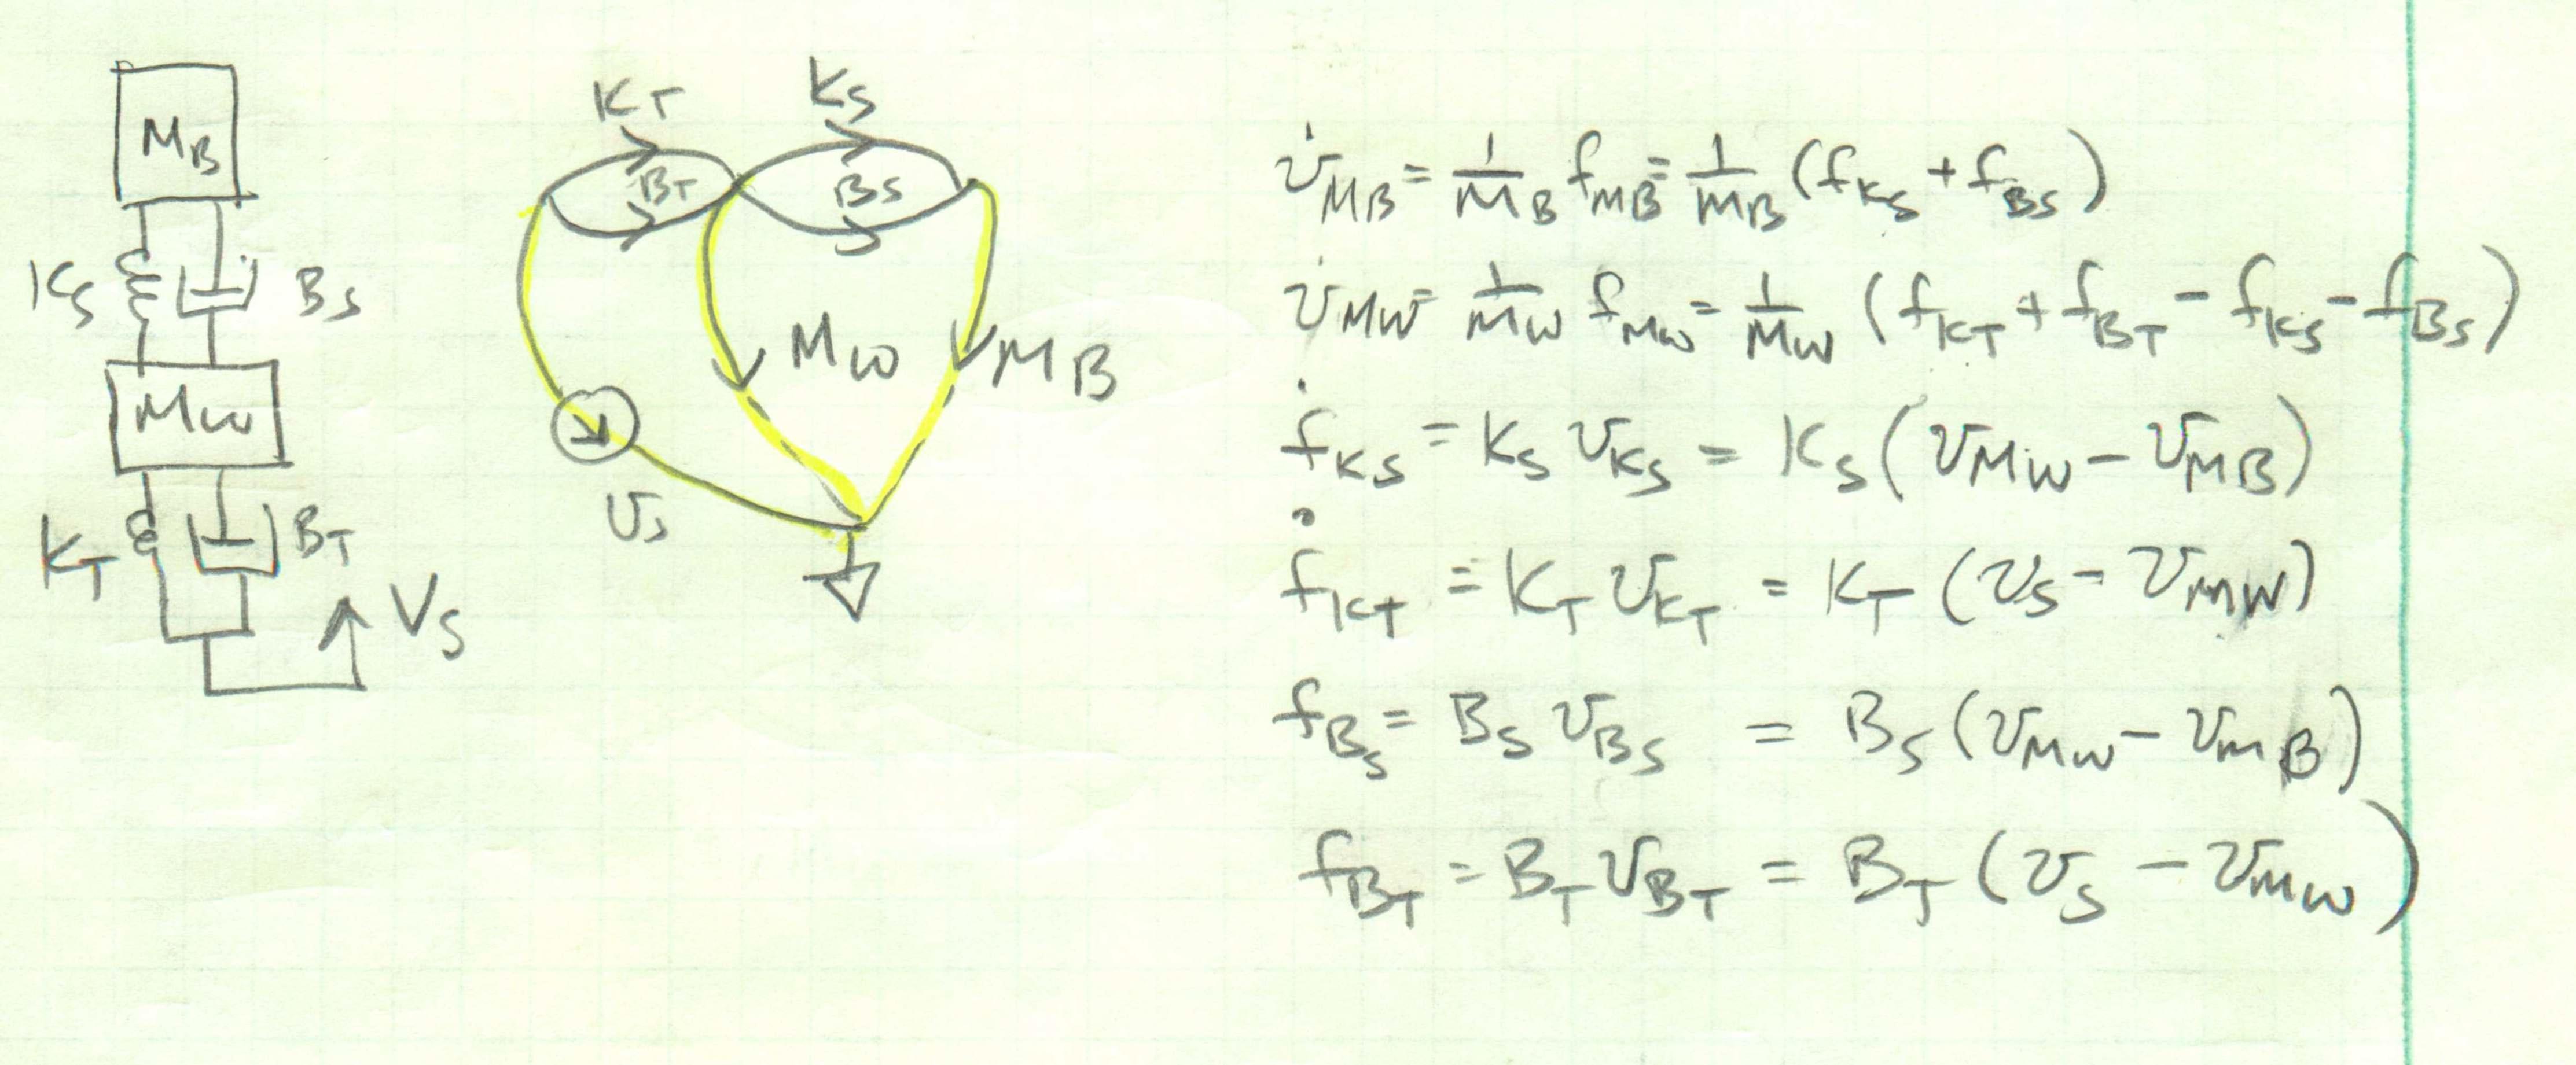 M_B
K_S B_S
M_W
K_T B_T
V_S
K_T K_S
B_T B_S
M_W M_B
v_s
v̇_MB = 1/M_B f_MB = 1/M_B (f_KS + f_BS)
v̇_MW = 1/M_W f_MW = 1/M_W (f_KT + f_BT - f_KS - f_BS)
ḟ_KS = K_S v_KS = K_S (v_MW - v_MB)
ḟ_KT = K_T v_KT = K_T (v_S - v_MW)
f_BS = B_S v_BS = B_S (v_MW - v_MB)
f_BT = B_T v_BT = B_T (v_S - v_MW)